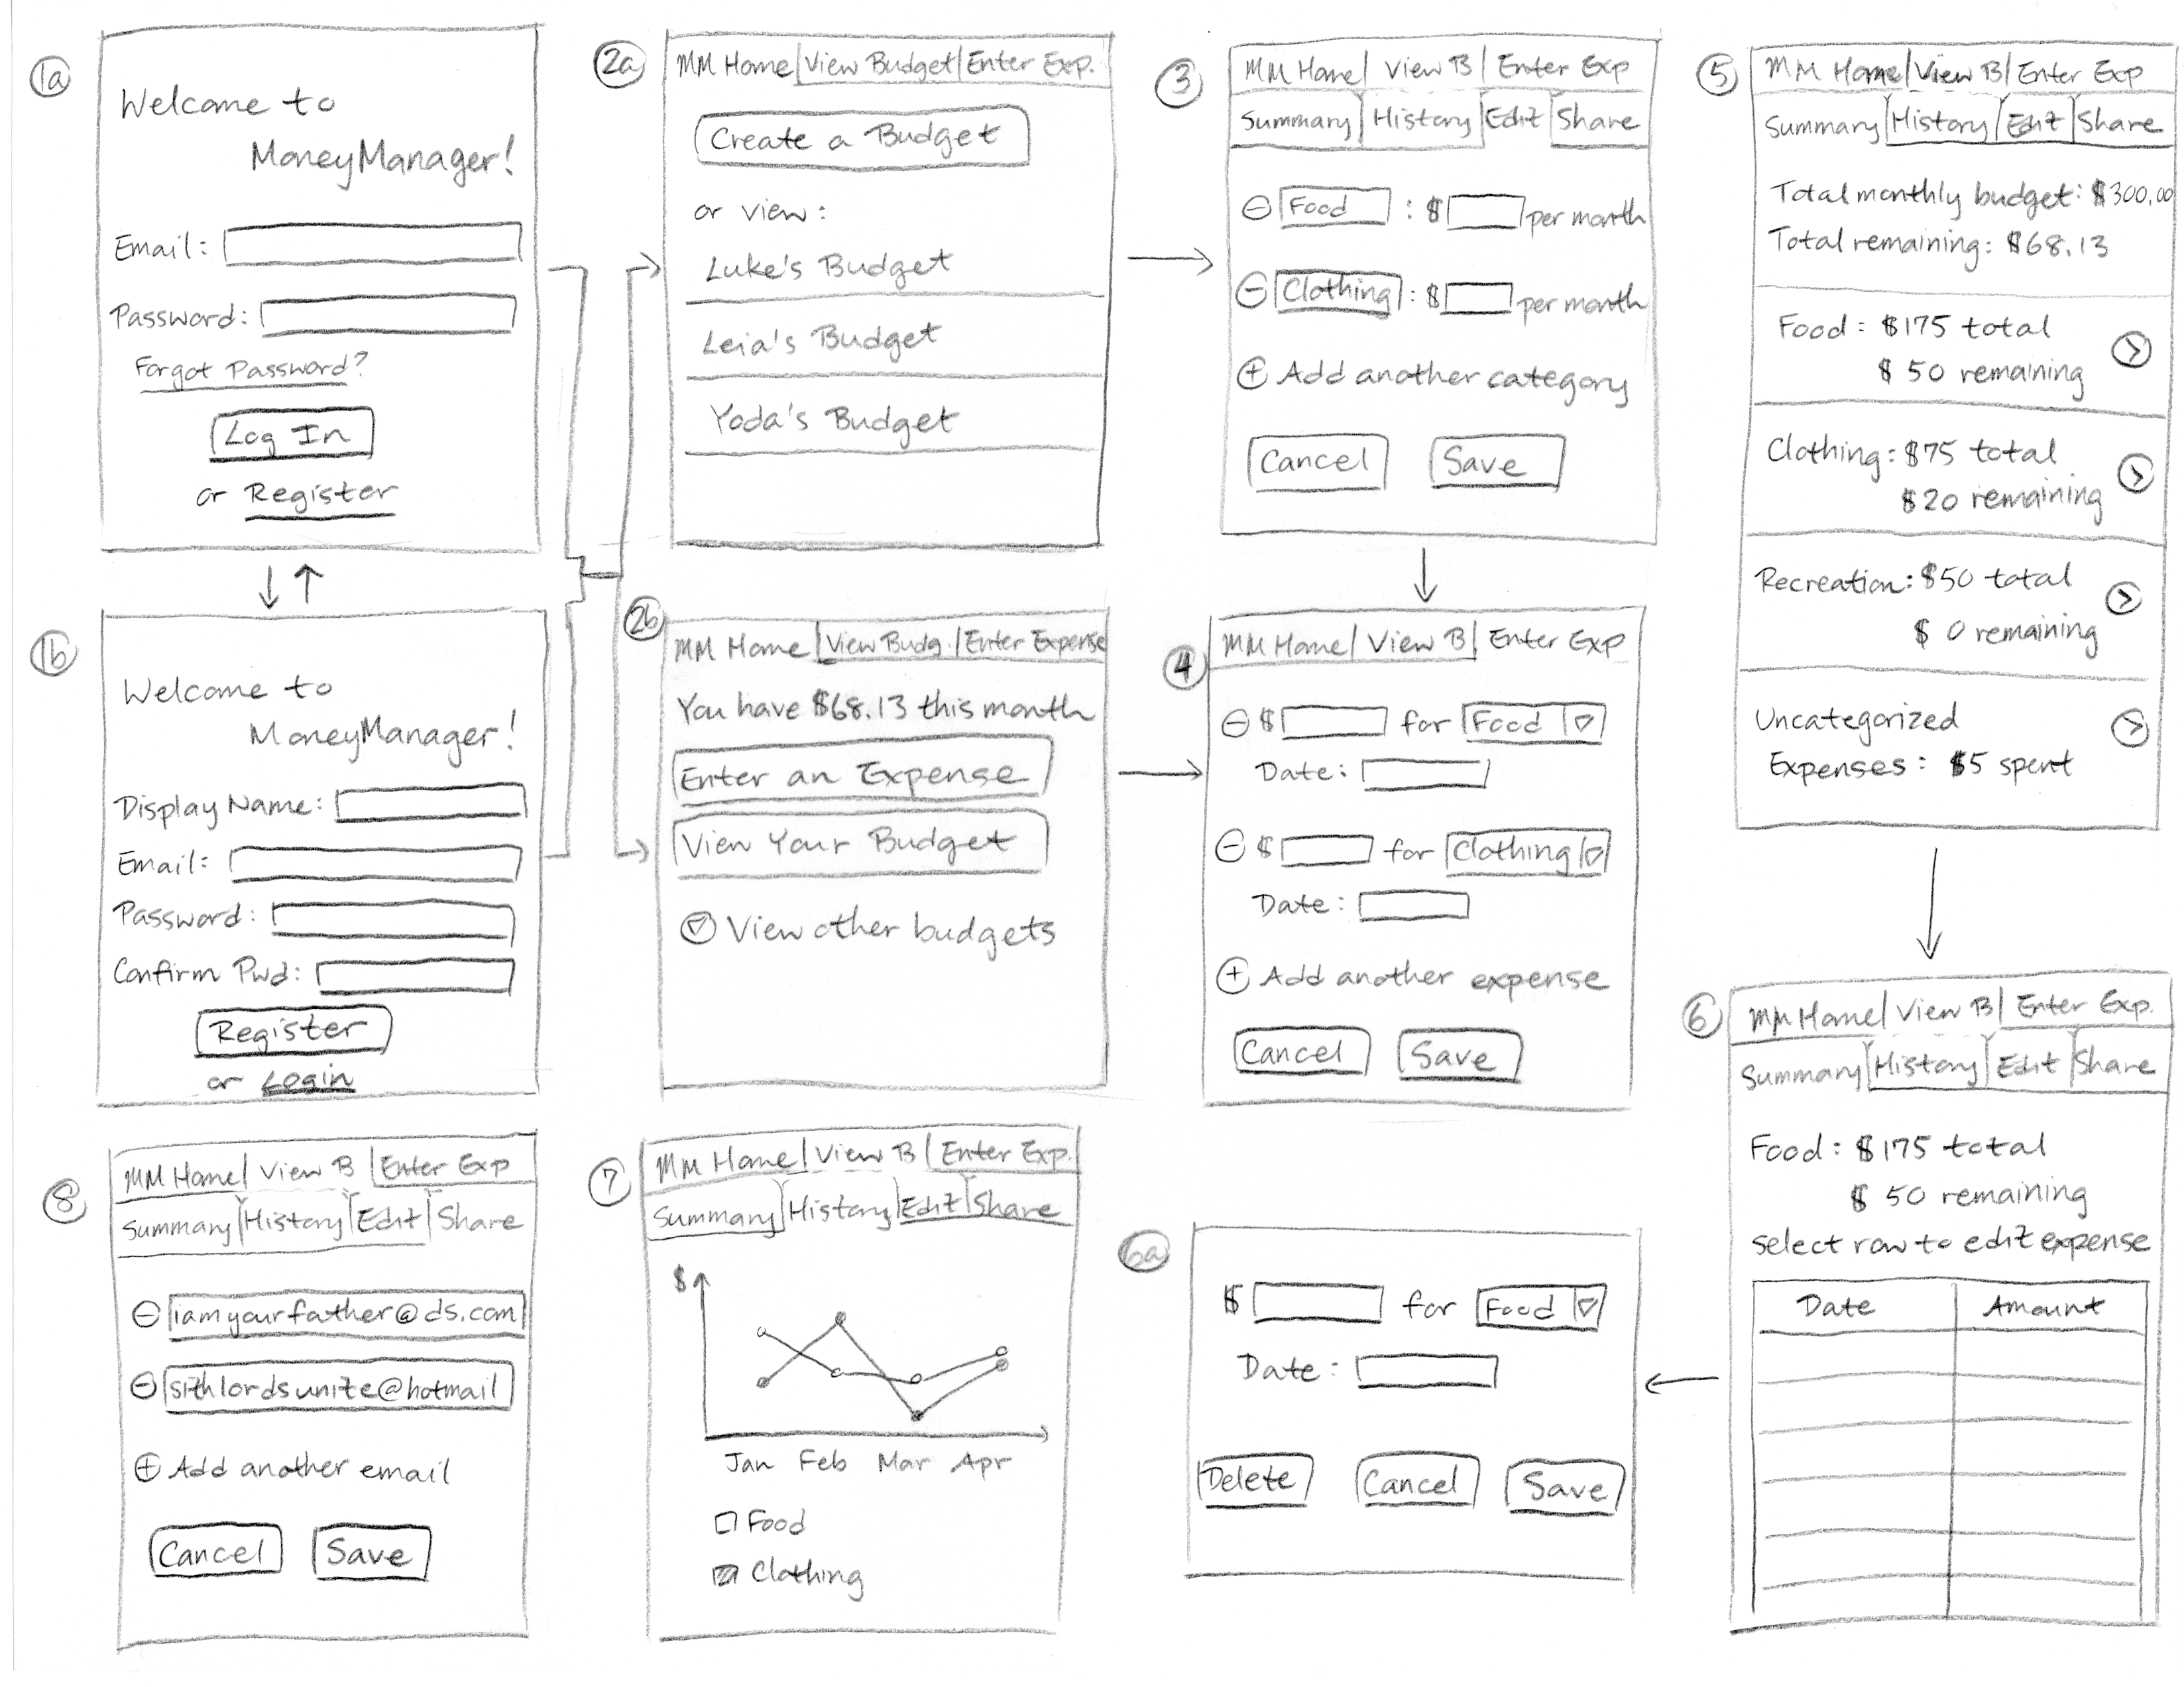 1a
Welcome to
MoneyManager!
Email:
Password:
Forgot Password?
Log In
or Register
1b
Welcome to
MoneyManager!
Display Name:
Email:
Password:
Confirm Pwd:
Register
or Login
2a
MM Home View Budget Enter Exp.
Create a Budget
or view:
Luke's Budget
Leia's Budget
Yoda's Budget
2b
MM Home View Budg. Enter Expense
You have $68.13 this month
Enter an Expense
View Your Budget
View other budgets
3
MM Home View B Enter Exp
Summary History Edit Share
Food : $ per month
Clothing : $ per month
+ Add another category
Cancel Save
4
MM Home View B Enter Exp
$ for Food
Date:
$ for Clothing
Date:
+ Add another expense
Cancel Save
5
MM Home View B Enter Exp
Summary History Edit Share
Total monthly budget: $300.00
Total remaining: $68.13
Food: $175 total
$ 50 remaining
Clothing: $75 total
$20 remaining
Recreation: $50 total
$ 0 remaining
Uncategorized
Expenses: $5 spent
6
MM Home View B Enter Exp.
Summary History Edit Share
Food: $175 total
$ 50 remaining
select row to edit expense
Date Amount
6a
$ for Food
Date:
Delete Cancel Save
7
MM Home View B Enter Exp.
Summary History Edit Share
$
Jan Feb Mar Apr
Food
Clothing
8
MM Home View B Enter Exp
Summary History Edit Share
iamyourfather@ds.com
sithlordsunite@hotmail
+ Add another email
Cancel Save